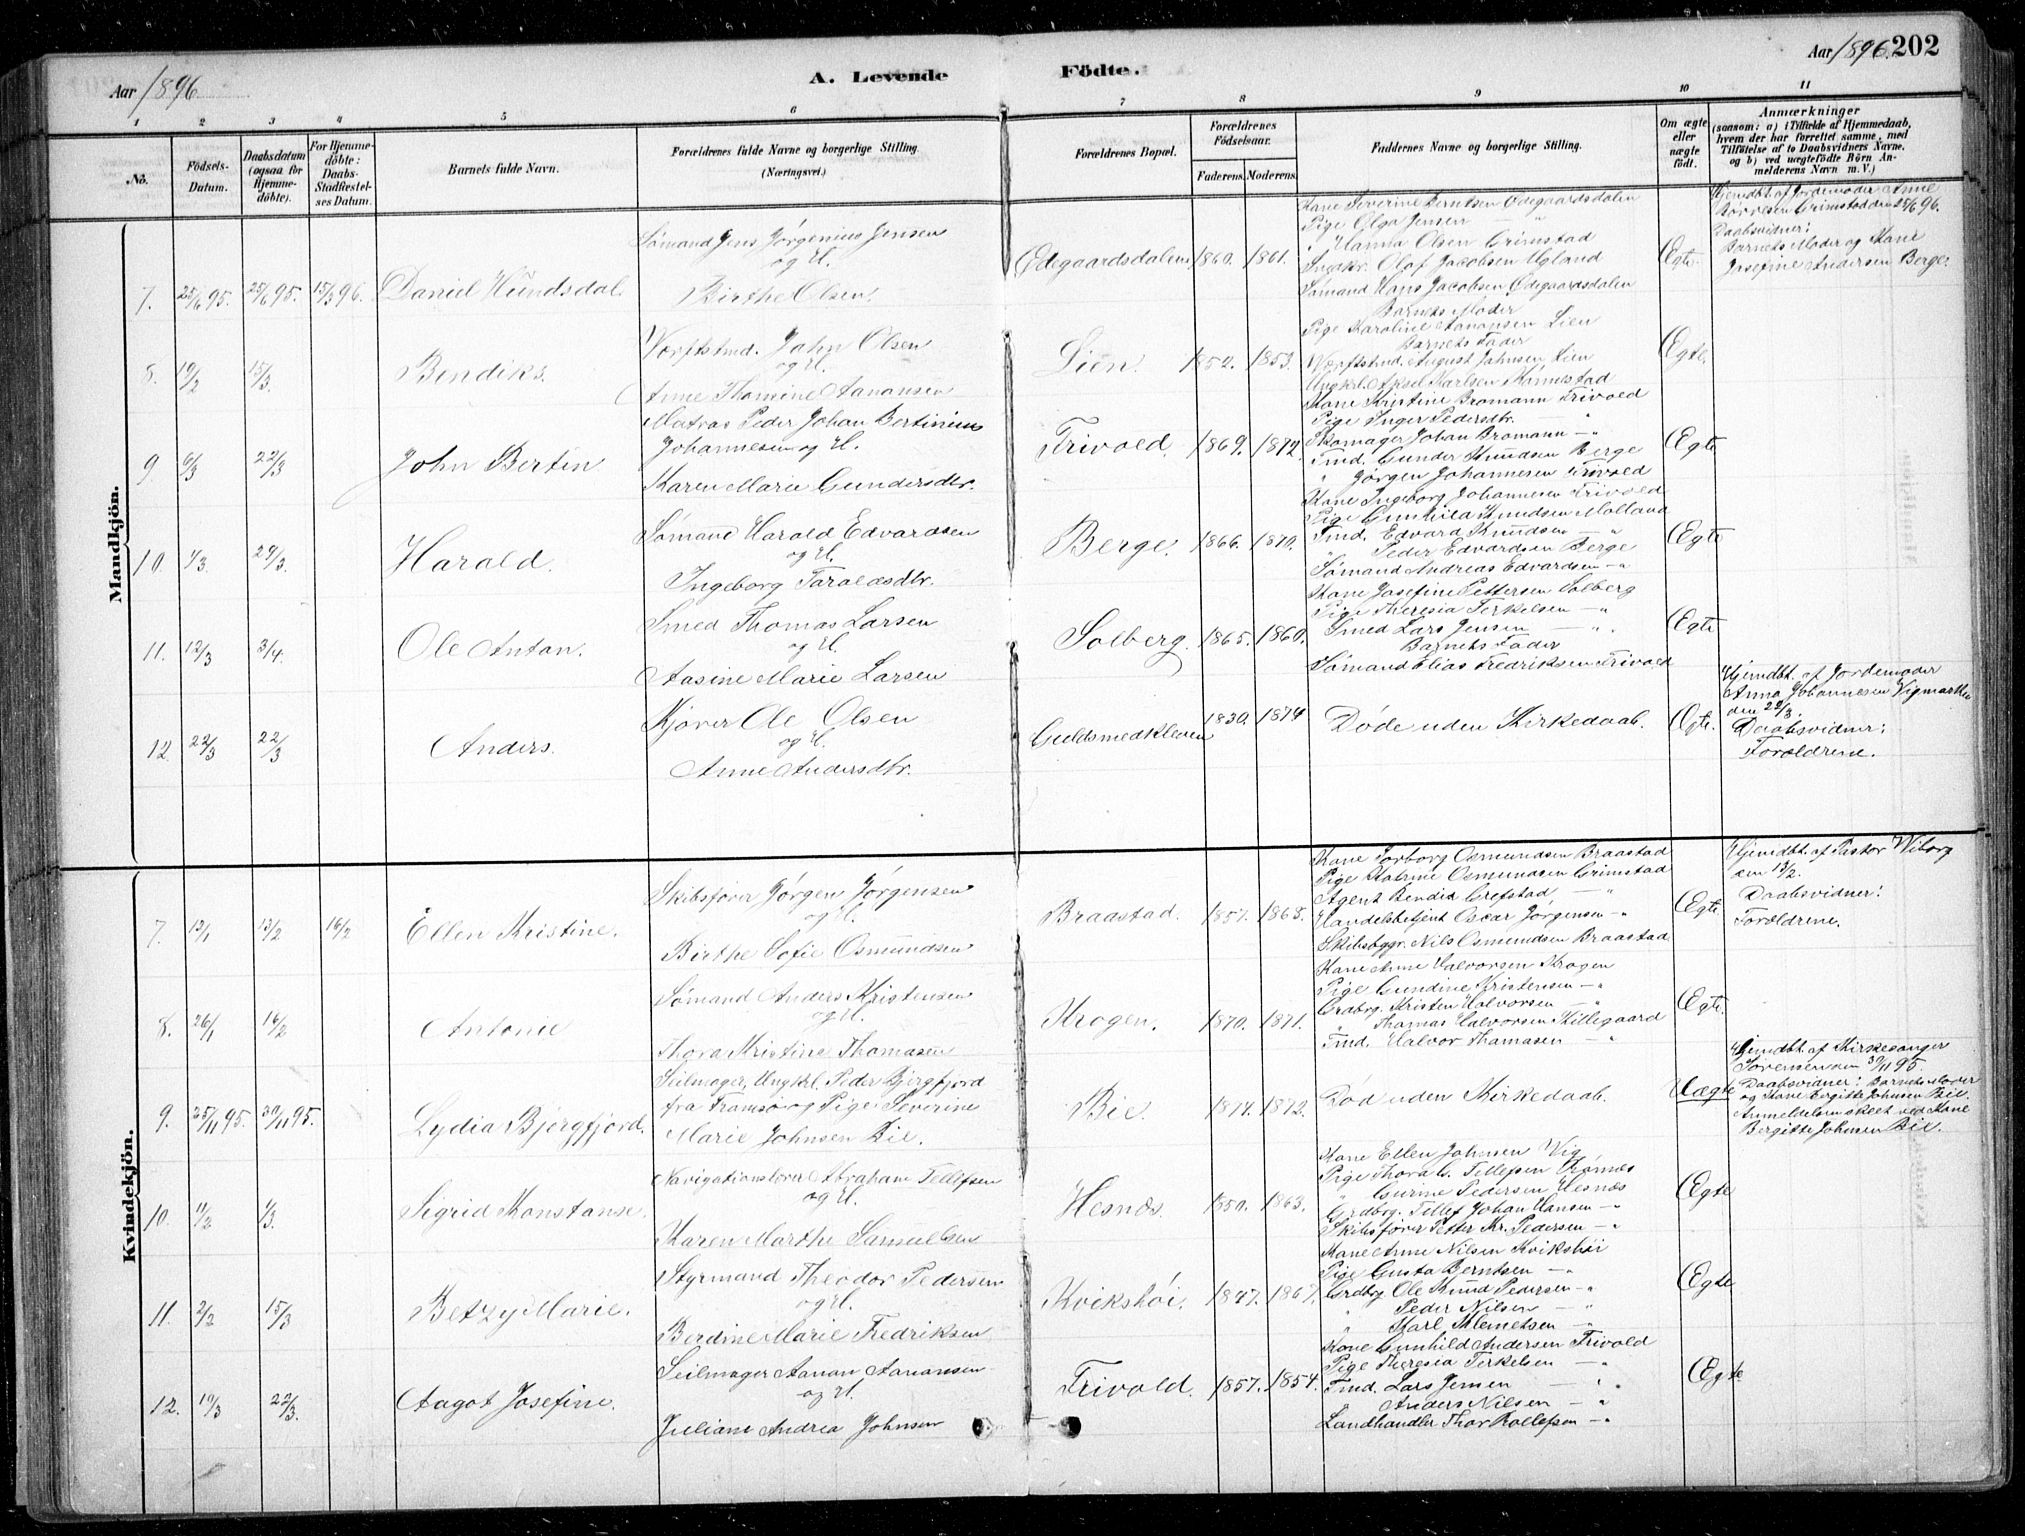 Aar 1896.
A. Levende
Födte.
Aar 1896. 202
1 2 3 4 5 6 7 8 9 10 11
No.
Födsels-Datum.
Daabsdatum (ogsaa för Hjemme-döbte).
For Hjemme-döbte: Daabs-Stadfæstel-ses Datum.
Barnets fulde Navn.
Forældrenes fulde Navne og borgerlige Stilling.
(Næringsvei.)
Forældrenes Bopæl.
Forældrenes Födselsaar.
Faderens. Moderens.
Faddernes Navne og borgerlige Stilling.
Om ægte eller uægte födt.
Anmærkninger
(saasom: a) i Tilfælde af Hjemmedaab,
hvem der har forrettet samme, med
Tilföielse af to Daabsvidners Navne,
og b) ved uægtefödte Börn An-
melderens Navn m. V.)
Mandkjön.
7. 25/6 95. 25/6 95. 15/3 96. Daniel Hundsdal.
Sømand Jens Jørgenius Jensen
og H.
Birthe Olsen.
Ødegaardsdalen 1860. 1861.
Kone Severine Berntsen Ødegaardsdalen
Pige Olga Jensen — "
" Hanna Olsen Grimstad
Ungkr. Olaf Jacobsen Ugland
Sømand Hans Jacobsen Ødegaardsdalen
Ægte.
Hjemdbt. af Jordemoder Anne
Børresen Grimstad den 25/6 96.
Daabsvidner:
Barnets Moder og Kone
Josefine Andersen Berge.
8. 19/2 15/3. Bendiks.
Værftstmd. Jahn Olsen
og H.
Anne Thomine Aanonsen
Lien. 1852. 1853.
Barnets Moder
Pige Karoline Aanonsen Lien
Barnets Fader
Værftstmd. August Jahnsen Lien
Ungkl. Aksel Karlsen
Ægte.
9 6/3 22/3 John Bertin
Matros Peder Johan Bertinius
Johannesen og H.
Karen Marie Gundersdtr.
Frivold. 1869. 1872.
Kone Kristine Bromann Frivold
Pige Inger Pedersdtr. "
Skomager Johan Bromann — "
Tmd. Gunder Knudsen Berge
" Jørgen Johannesen Frivold
Ægte
10. 1/3. 29/3. Harald.
Sømand Harald Edvardsen
og H.
Ingeborg Taraldsdtr.
Berge. 1866. 1870.
Kone Ingeborg Johannesen Frivold
Pige Gunhild Knudsen Molland
Tmd. Edvard Knudsen — "
" Peder Edvardsen Berge
Sømand Andreas Edvardsen — "
Ægte
11. 12/3 3/4. Ole Anton.
Smed Thomas Larsen
og H.
Aasine Marie Larsen
Solberg. 1865. 1860.
Kone Josefine Pettersen Solberg
Pige Theresia Terkelsen — "
Smed Lars Jensen — "
Barnets Fader
Sømand Elias Fredriksen Frivold
Ægte
12. 22/3 22/3 Anders.
Kjører Ole Olsen
og H.
Anne Andersdtr.
Guldsmedkleven 1830. 1874
Døde uden Kirkedaab.
Ægte.
Hjemdbt. af Jordemoder
Anna Johannesen Vigmarken
den 22/3.
Daabsvidner:
Forældrene.
Kvindekjön.
7. 13/1 13/2 16/2 Ellen Kristine.
Skibsfører Jørgen Jørgensen
og H.
Birthe Sofie Osmundsen
Braastad. 1857. 1865.
Kone Torborg Osmundsen Braastad
Pige Katrine Osmundsen Grimstad
Agent Bendix Grefstad, — "
Handelsbetjent Oscar Jørgensen — "
Skibsbggr. Nils Osmundsen Braastad
Ægte
Hjemdbt. af Pastor Wiborg
den 13/2.
Daabsvidner:
Forældrene.
8. 26/1 16/2 Antonie
Sømand Anders Kristensen
og H.
Thora Kristine Thomasen
Krogen. 1870. 1871.
Kone Anne Halvorsen Krogen
Pige Gundine Kristensen — "
Grdbrg. Kristen Halvorsen — "
" Thomas Halvorsen Killegaard
Tmd. Halvor Thomasen — "
Ægte.
9. 25/11 95. 30/11 95. Lydia Bjergfjord.
Seilmager, Ungkl. Peder Bjergfjord
fra Tromsø og Pige Severine
Marie Johnsen Bie.
Bie. 1874. 1872.
Død uden Kirkedaab.
Uægte
Hjemdbt. af Kirkesanger
Sørensen den 30/11 95.
Daabsvidner: Barnets Moder
og Kone Bergitte Johnsen Bie.
Anmeldelsen skeet ved Kone
Bergitte Johnsen Bie.
10. 11/2 1/3. Sigrid Konstanse.
Navigationslærer Abraham Tellefsen
og H.
Karen Marthe Samuelsen
Hesnæs. 1850. 1863.
Kone Ellen Johnsen Vig
Pige Thora G. Tellefsen
" Gurine Pedersen Hesnæs
Grdbrg. Tellef Johan Hansen — "
Skibsfører Petter Kr. Pedersen — "
Ægte
11. 2/2 15/3 Betzy Marie.
Styrmand Theodor Pedersen
og H.
Berdine Marie Fredriksen
Kvikshöi. 1847. 1867.
Kone Anne Nilsen Kvikshöi
Pige Gusta Berntsen — "
Grdbrg. Ole Knud Pedersen — "
" Peder Nilsen — "
" Karl Klemetsen — "
Ægte
12. 19/3 22/3. Aagot Josefine.
Seilmager Aanon Aanonsen
og H.
Juliane Andrea Johnsen
Frivold. 1857. 1854.
Kone Gunhild Andersen Frivold
Pige Theresia Terkelsen — "
Tmd. Lars Jensen — "
" Anders Nilsen — "
Landhandler Thor Rollefsen — "
Ægte